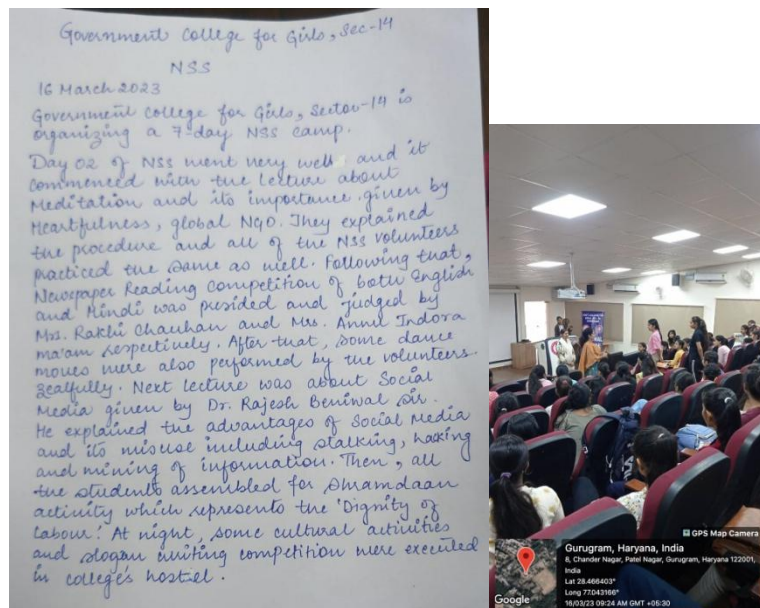 Government College for Girls, Sec-14
NSS
16 March 2023
Government College for Girls, Sector-14 is
organizing a 7-day NSS camp.
Day 02 of NSS went very well and it
commenced with the lecture about
Meditation and its importance given by
Heartfulness, global NGO. They explained
the procedure and all of the NSS volunteers
practiced the same as well. Following that,
Newspaper Reading Competition of both English
and Hindi was presided and judged by
Mrs. Rakhi Chauhan and Mrs. Annu Indora
ma'am respectively. After that, some dance
moves were also performed by the volunteers
zealfully. Next lecture was about Social
Media given by Dr. Rajesh Beniwal sir.
He explained the advantages of Social Media
and its misuse including stalking, hacking
and mining of information. Then, all
the students assembled for Shramdaan
activity which represents the 'Dignity of
Labour.' At night, some cultural activities
and slogan writing competition were executed
in college's hostel.
GPS Map Camera
Gurugram, Haryana, India
8, Chander Nagar, Patel Nagar, Gurugram, Haryana 122001,
India
Lat 28.466403°
Long 77.043166°
16/03/23 09:24 AM GMT +05:30
Google